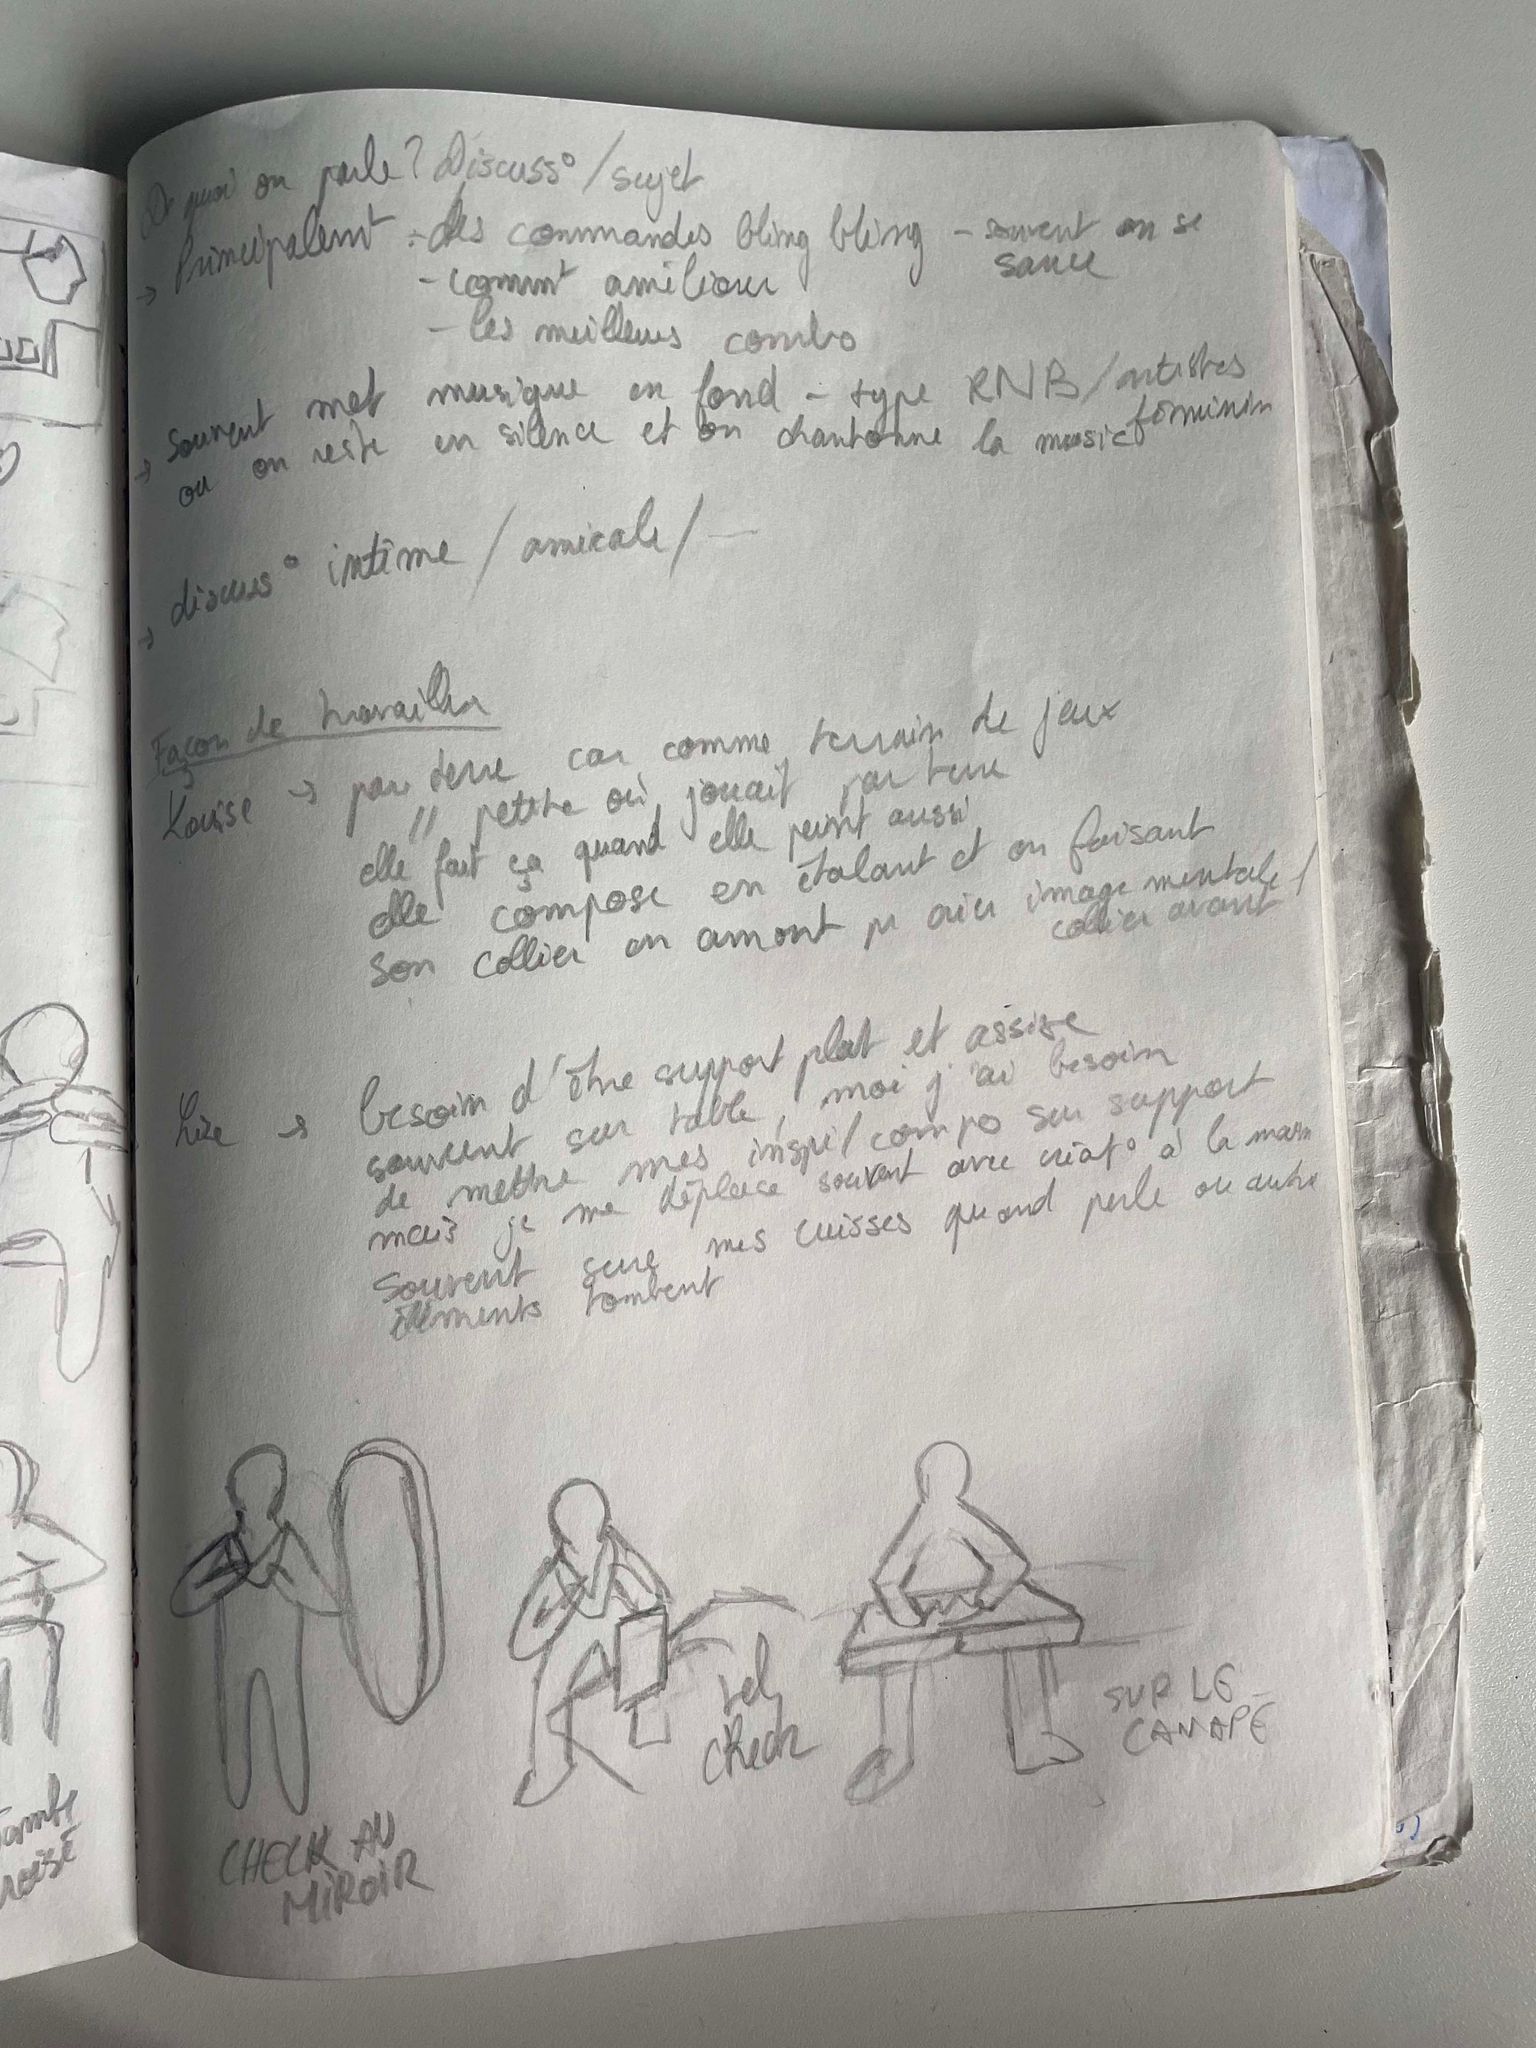 De quoi on parle ? Discuss° / sujet
→ Principalemt - des commandes bling bling - souvent on se sauce
- commt améliorer
- les meilleurs combo
→ souvent met musique en fond - type RNB / artistes féminin
ou on reste en silence et on chantonne la music
→ discuss° intime / amicale / —
Façon de travailler
Louise → par terre car comme terrain de jeux
" petite où jouait par terre
elle fait ça quand elle peint aussi
elle compose en étalant et en faisant
son collier en amont pr avoir image mentale /
collier avant
Lise → besoin d'être support plat et assise
souvent sur table, moi j'ai besoin
de mettre mes inspi / compo sur support
mais je me déplace souvent avec créat° à la main
Souvent serre mes cuisses quand perle ou autre
éléments tombent
CHECK AU
MIROIR
tel
check
SUR LE
CANAPÉ